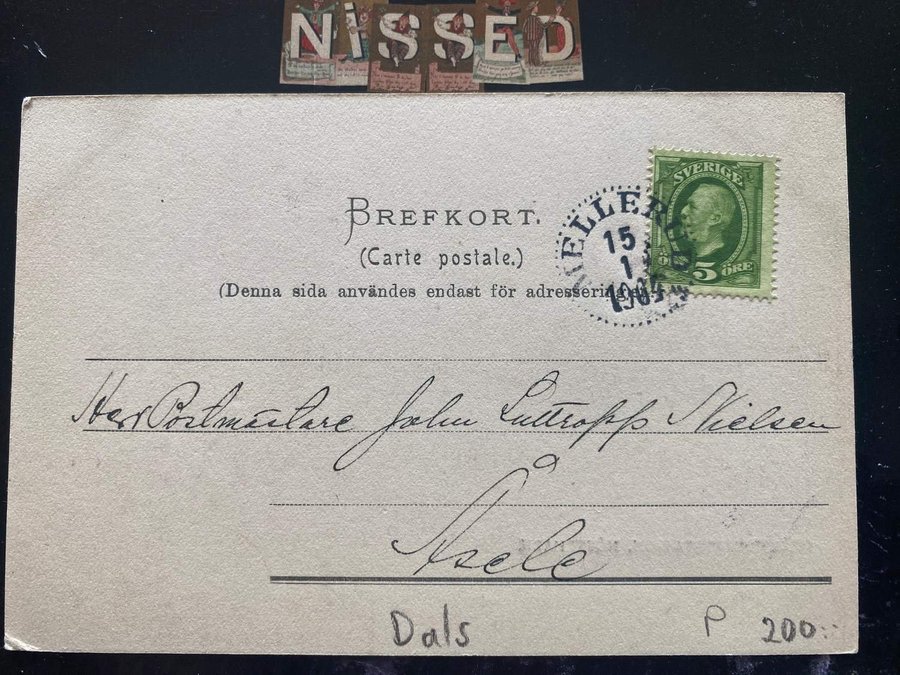 NiSSED
BREFKORT.
(Carte postale.)
(Denna sida användes endast för adressering
SVERIGE
5 ÖRE
MELLERUD
15
1
1904
Herr Postmästare John Luttropp Nielsen
Åsele
Dals
P 200:-